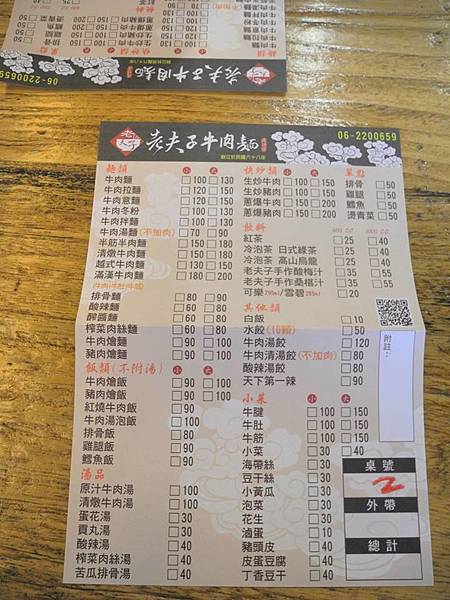 老夫子牛肉麵
創立於民國六十八年
06-2200659
麵類 小 大
牛肉麵 □100 □130
牛肉拉麵 □120 □150
牛肉意麵 □120 □150
牛肉冬粉 □100 □130
牛肉拌麵 □100 □130
牛肉湯麵(不加肉) □70 □90
半筋半肉麵 □150 □180
清燉牛肉麵 □150 □180
越式牛肉麵 □150 □180
滿漢牛肉麵 □150 □200
排骨麵 □80 □90
酸辣麵 □60 □80
醡醬麵 □60 □80
榨菜肉絲麵 □60 □80
牛肉燴麵 □100
豬肉燴麵 □100
飯類(不附湯) 小 大
牛肉燴飯 □100
豬肉燴飯 □100
紅燒牛肉飯 □100
牛肉湯泡飯 □100
排骨飯 □90
雞腿飯 □90
鱈魚飯 □90
湯品
原汁牛肉湯 □100
清燉牛肉湯 □100
蛋花湯 □30
貢丸湯 □30
酸辣湯 □40
榨菜肉絲湯 □40
苦瓜排骨湯 □40
快炒類 小 大
生炒牛肉 □100 □150
生炒豬肉 □100 □150
蔥爆牛肉 □100 □150
蔥爆豬肉 □100 □150
飲料
紅茶 □25 □40
冷泡茶 日式綠茶 □25 □40
冷泡茶 高山烏龍 □25 □40
老夫子手作酸梅汁 □25 □35
老夫子手作桑椹汁 □25 □35
可樂295ml/雪碧295ml □20
其他類
白飯 □10
水餃(10顆) □50
牛肉湯餃 □120
牛肉清湯餃(不加肉) □80
酸辣湯餃 □80
天下第一辣 □90
小菜 小 大
牛腱 □100 □150
牛肚 □100 □150
牛筋 □100 □150
小菜 □30 □40
海帶絲 □30
豆干絲 □30
小黃瓜 □30
泡菜 □30
花生 □30
滷蛋 □10
豬頭皮 □40
皮蛋豆腐 □40
丁香豆干 □40
單點
排骨 □50
雞腿 □50
鱈魚 □50
燙青菜 □50
附註：
桌號
2
外帶
總計